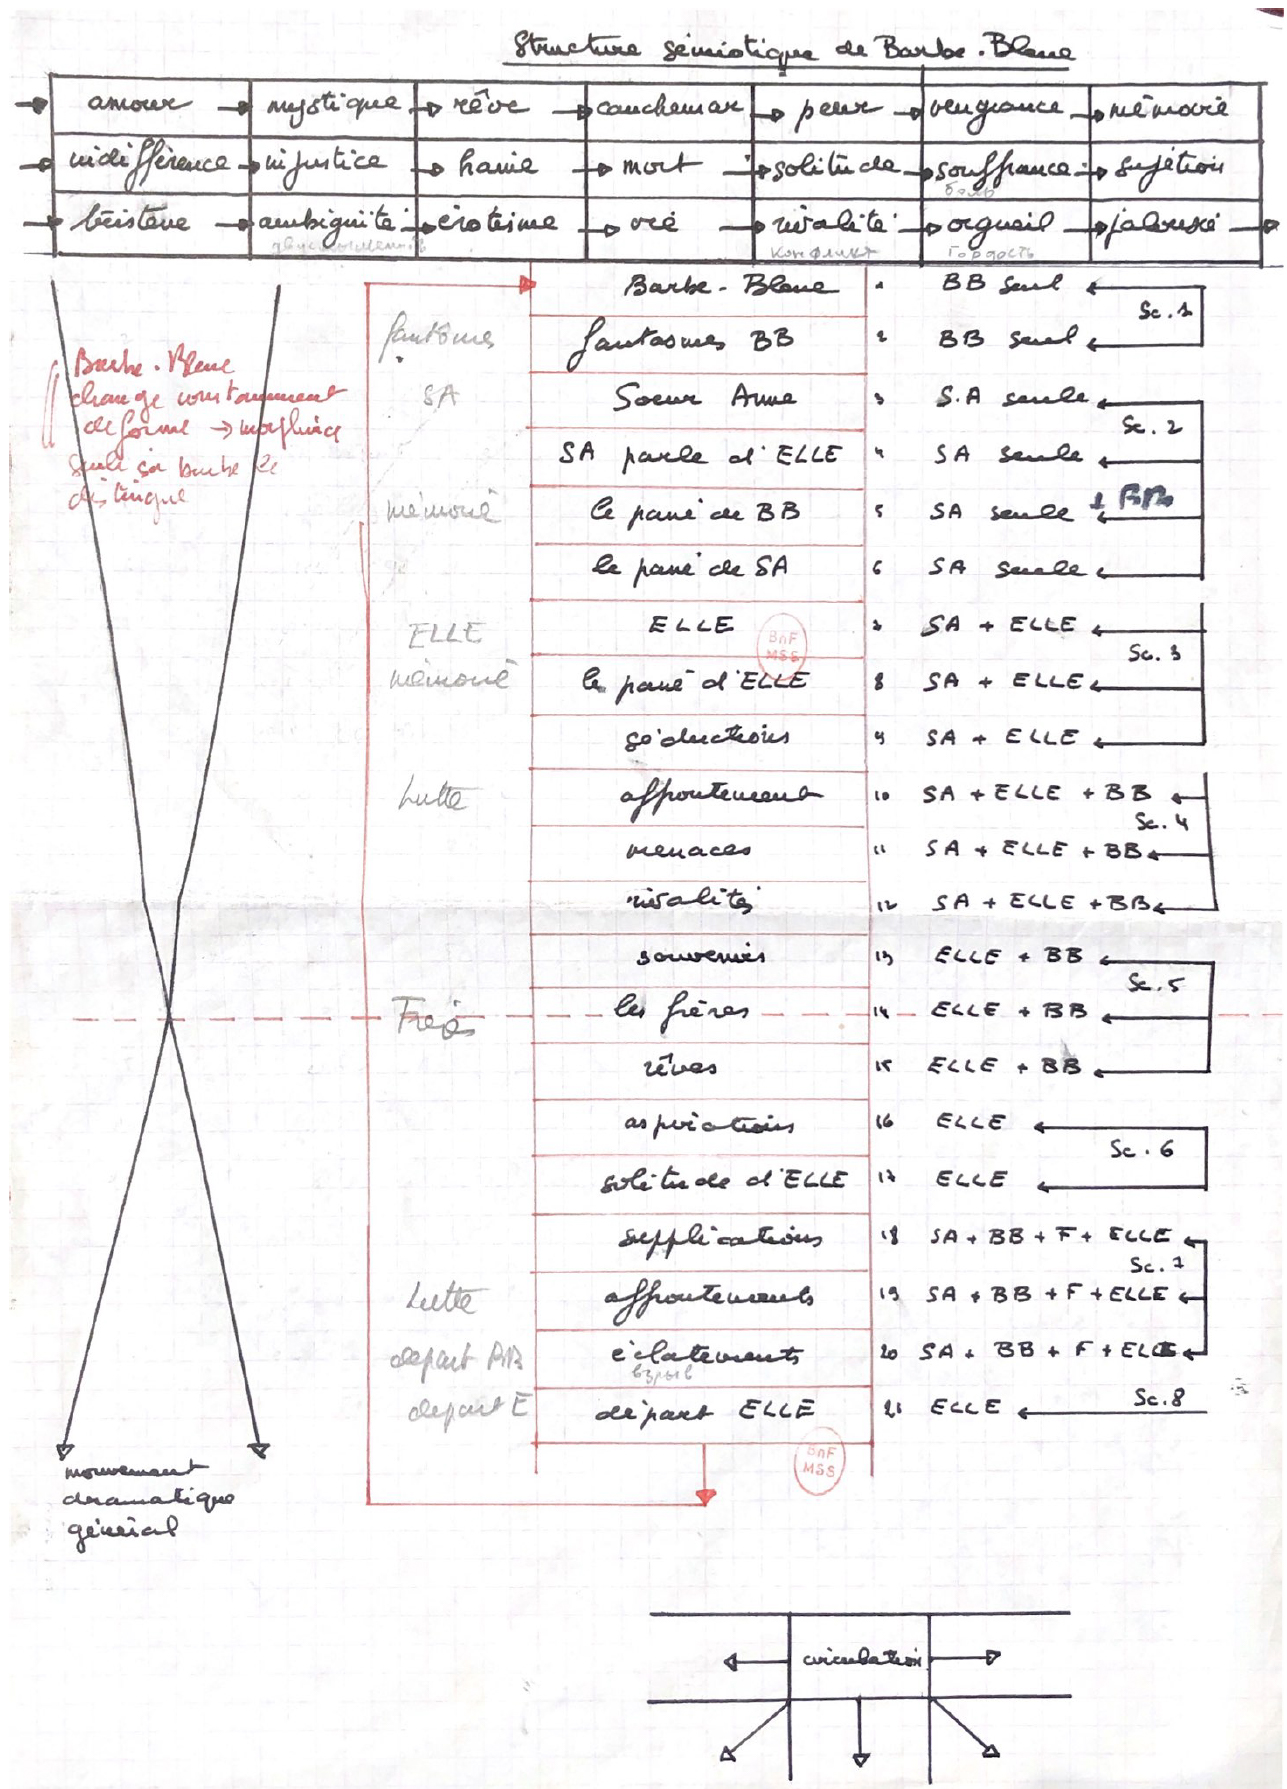 Structure sémiotique de Barbe-Bleue
→ amour → mystique → rêve → cauchemar → peur → vengeance → mémoire
→ indifférence → injustice → haine → mort → solitude → souffrance → sujétion
боль
→ bêtise → ambiguïté → érotisme → vie → rivalité → orgueil → jalousie →
двусмысленность конфликт гордость
Barbe-Bleue 1 BB seul
Sc. 1
fantômes fantasmes BB 2 BB seul
Barbe-Bleue
change constamment
de forme →
seule sa barbe le
distingue
SA Soeur Anne 3 S.A seule
Sc. 2
SA parle d'ELLE 4 SA seule
mémoire le passé de BB 5 SA seule + BB
le passé de SA 6 SA seule
ELLE ELLE 7 SA + ELLE
BnF
MSS
Sc. 3
mémoire le passé d'ELLE 8 SA + ELLE
séductions 9 SA + ELLE
Lutte affrontement 10 SA + ELLE + BB
Sc. 4
menaces 11 SA + ELLE + BB
rivalités 12 SA + ELLE + BB
souvenirs 13 ELLE + BB
Sc. 5
les frères 14 ELLE + BB
rêves 15 ELLE + BB
aspirations 16 ELLE
Sc. 6
solitude d'ELLE 17 ELLE
supplications 18 SA + BB + F + ELLE
Sc. 7
Lutte affrontements 19 SA + BB + F + ELLE
depart BB éclatements 20 SA + BB + F + ELLE
взрыв
depart E départ ELLE 21 ELLE
Sc. 8
BnF
MSS
mouvement
dramatique
général
circulation